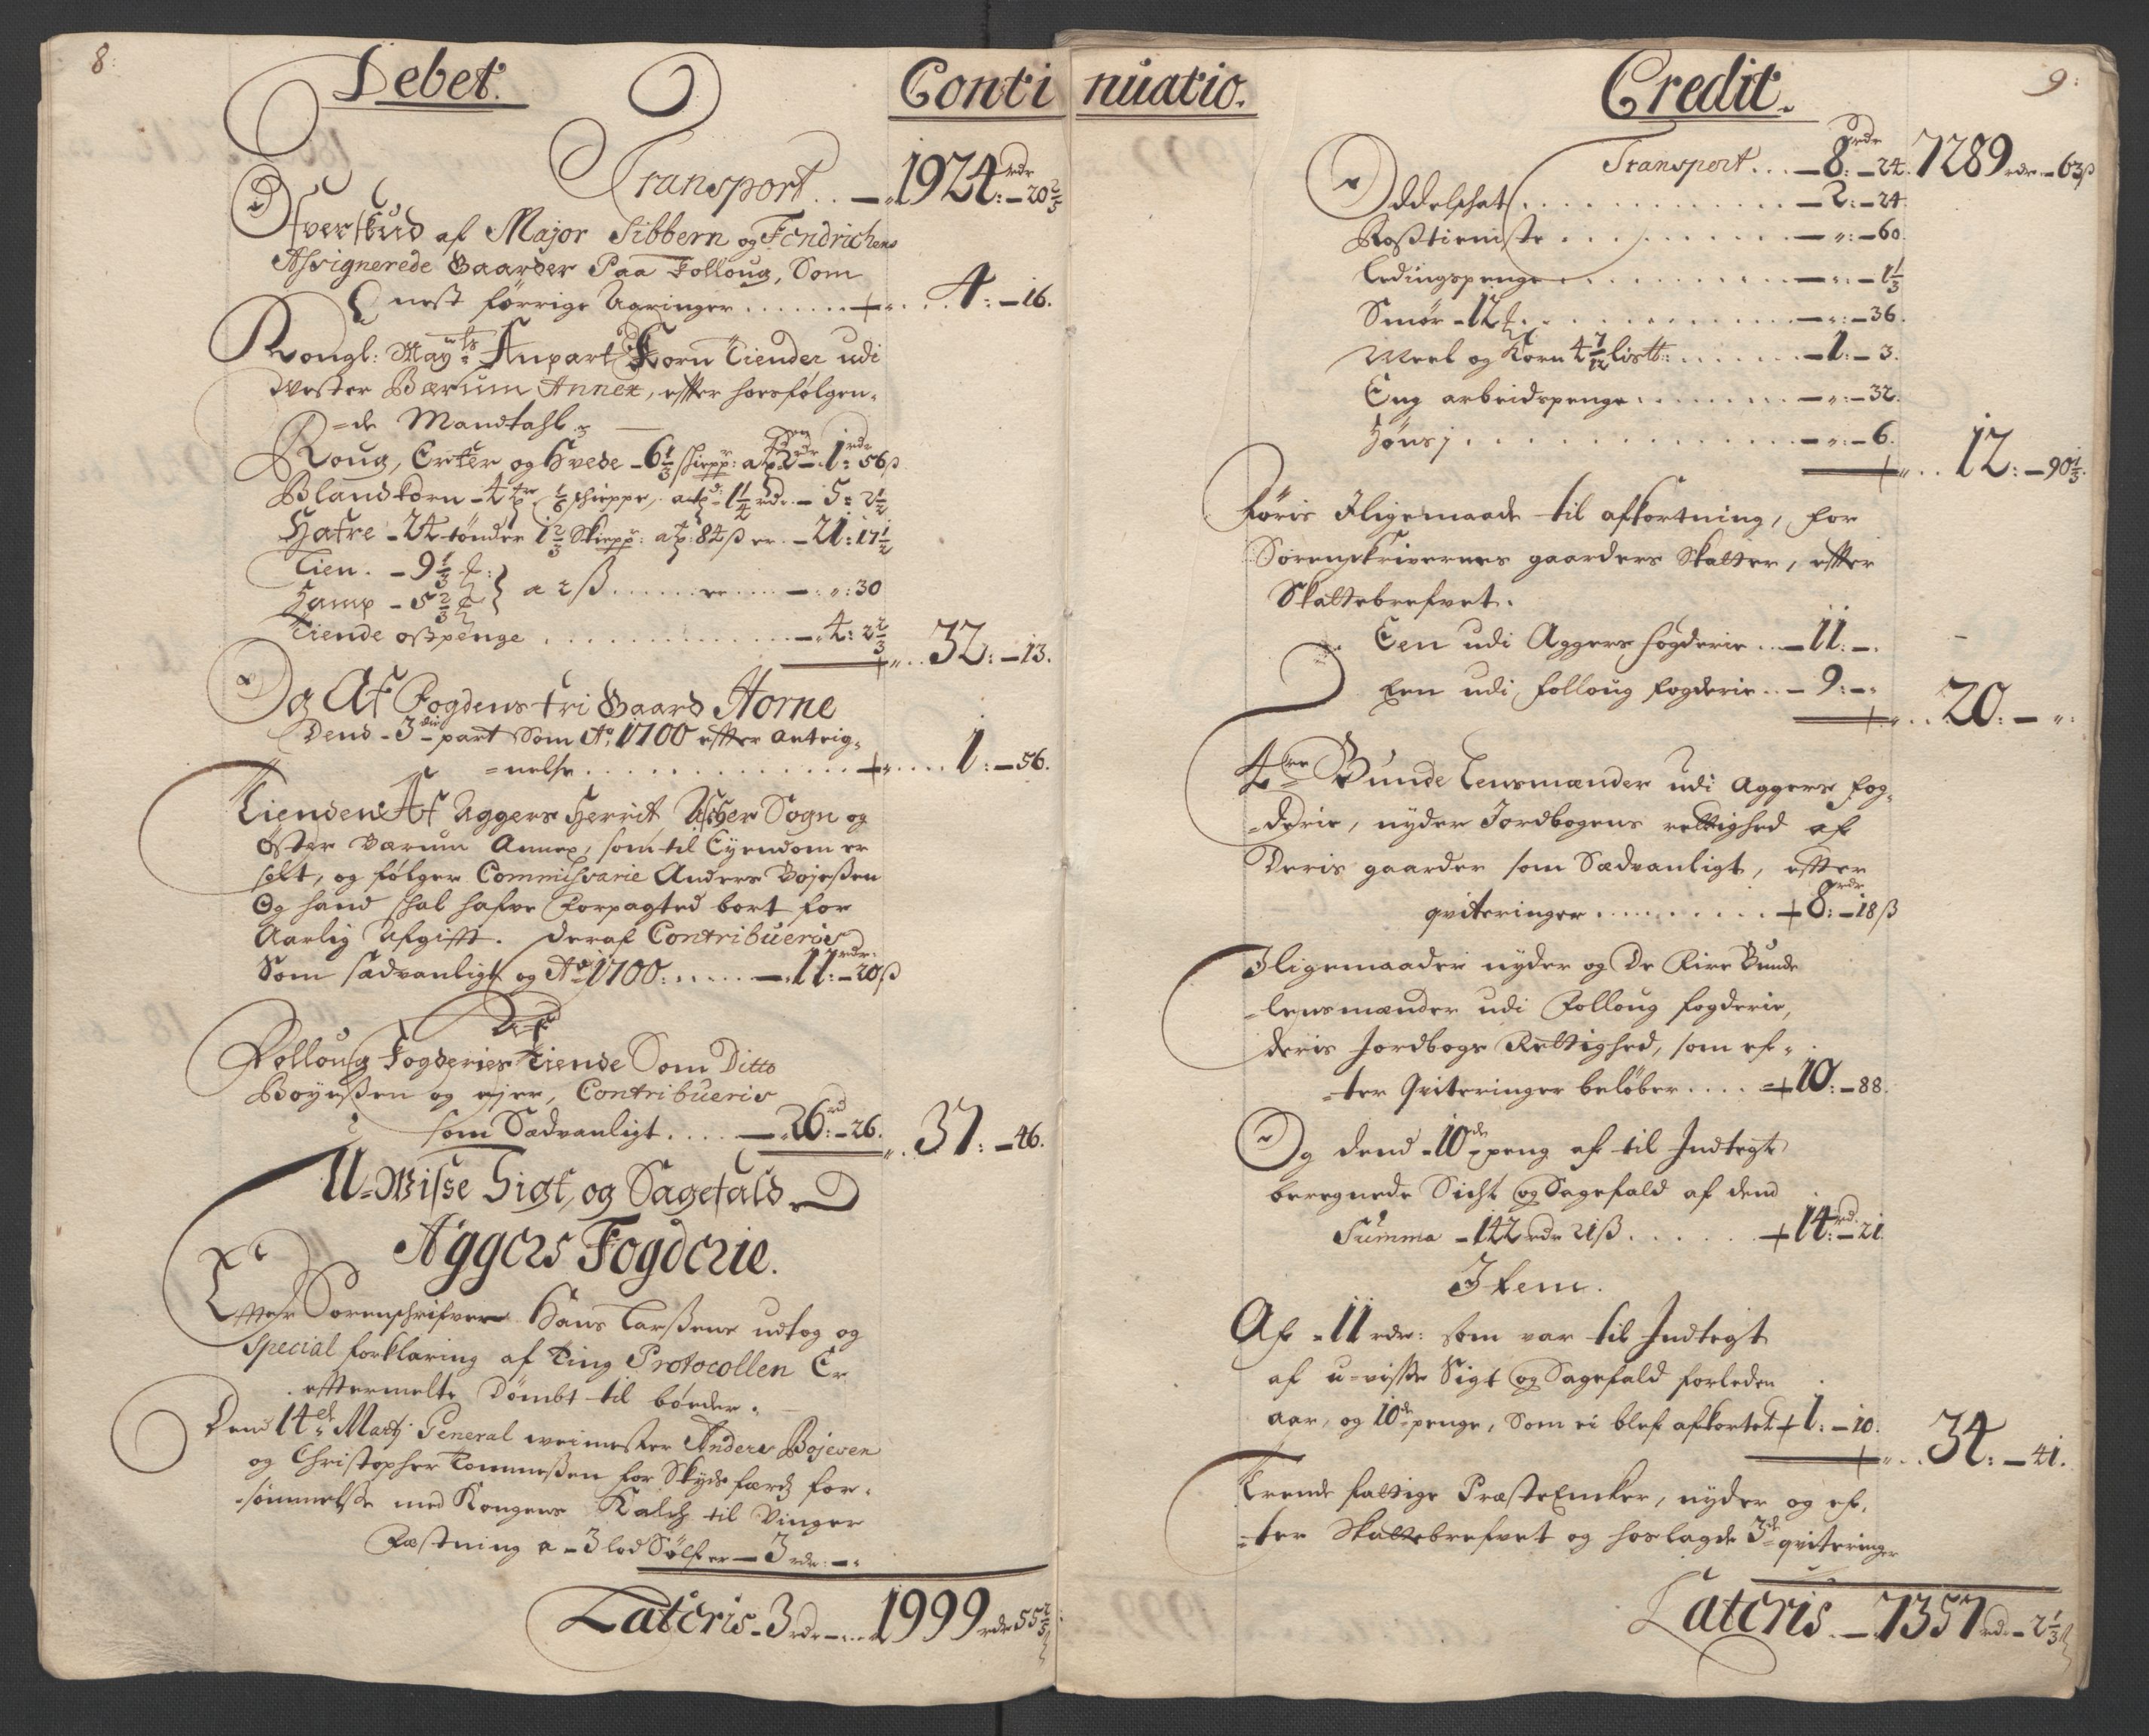 8:
Debet.
Conti
Transport . . — 1924 rdr: – 20 2/5
Ofverskud af Major Sibbern og Fendrichens
Assignerede Gaarder Paa Folloug, Som
nest forrige Aaringer . . . . . . 4: – 16.
Kongl: Mayts Anpart Korn Tiender udi
Wester Bærum Annex, effter hoesfølgen-
=de Mandtahl
Roug, Erter og Hvede – 6 1/3 schiepp: a 2 rdr – 1 rdr 56 ß
Blandkorn – 4 tr 1/2 schieppe, a td 1 1/4 rdr. – 5: 2 1/2
Hafre – 24 tønder 1 2/3 Skiepp: a t: 84 ß er. – 21: 17 1/2
Lien. – 9 1/3
Hamp – 5 2/3 } a 2 ß . . . . . er . . . . – „: 30
Tiende ostpenge . . . . . . . – 4: 2 2/3
32: – 13.
Og Af Fogdens fri Gaard Horne
Dend 3die part Som Ao 1700 effter anteig-
=nelse . . . . . . . . 1: – 56.
Tienden Af Aggers Herrit, Asker Sogn og
Øster Bærum Annex, som til Eyendom er
solt, og følger Commissarie Anders Bojeßen
Og hand schal hafve Forpagted bort for
Aarlig Afgifft. Deraf Contribueris
Som sædvanligt og Ao 1700: . . . . . — 11 rdr: – 20 ß
Af
Folloug Fogderies Tiende Som Ditto
Boyeßen og ejer, Contribueris
som Sædvanligt . . . . — 26 rd – 26. 37: – 46.
U-Wisse Sigt, og Sagefald
Aggers Fogderie.
Effter Sorenschrifver Hans Larßens udtog og
Special forklaring af Ting Protocollen Er
effternelte Dømbt til bøeder.
Dend 14de Martj General weimester Anders Bojesen
og Christopher Tommeßen for Skydsfærds for-
sømmelße med Kongens Kalch til Vinger
Fæstning a – 3 lod Sølf er – 3 rdr: –
Lateris – 3 rdr – . . . 1999 rdr 55 2/5
nuatio.
Credit.
9:
Transport . . . – 8 rdr: – 24. 7289 rdr – 63 ß
Oddelschat . . . . . . . – 2: – 24.
Roßtieniste . . . . . . . – „: – 60.
Ledingspenge . . . . . . . – „: – 1 1/3
Smør – 12 . . . . . . . – „: – 36.
Meel og Korn 4 7/12 listt: . . . . . . – 1: – 3.
Eng arbeidspenge . . . . . . . – „: – 32.
Høns j . . . . . . . – „: – 6.
12: – 90 1/3.
Føris Iligemaade til afkortning, for
Sorenskrivernes gaarders Skatter, effter
Skattebrefvet.
Een udi Aggers fogderie . . – 11: –.
Een udi Folloug fogderie . . – 9: –.
20: – „:
4re Bunde Lensmænder udi Aggers Fog-
=derie, nyder Jordbogens rettighed af
Deris gaarder som Sædvanligt, effter
qviteringer . . . . . . . 8 rdr: – 18 ß
Iligemaader nyder og De Fire Bunde
=lensmænder udi Folloug fogderie,
deris Jordbogs Rettighed, som ef-
=ter Qviteringer beløber . . . . 10: – 88.
Og dend – 10de peng af til Indtegt
beregnede Sicht og Sagefald af dend
Summa – 142 rdr 21 ß . . . . . . 14 rd: – 21
Item.
Af – 11 rdr: som var til Indtegt
af u-visse Sigt og Sagefald forleden
aar, og 10de penge, Som ei blef afkortet 1: – 10.
34: – 41.
Trende fattige Præste Enker, nyder og ef-
=ter Skattebrefvet og hoslagde 3de qviteringer
Lateris . — 7357 rd – 2 1/3 ß